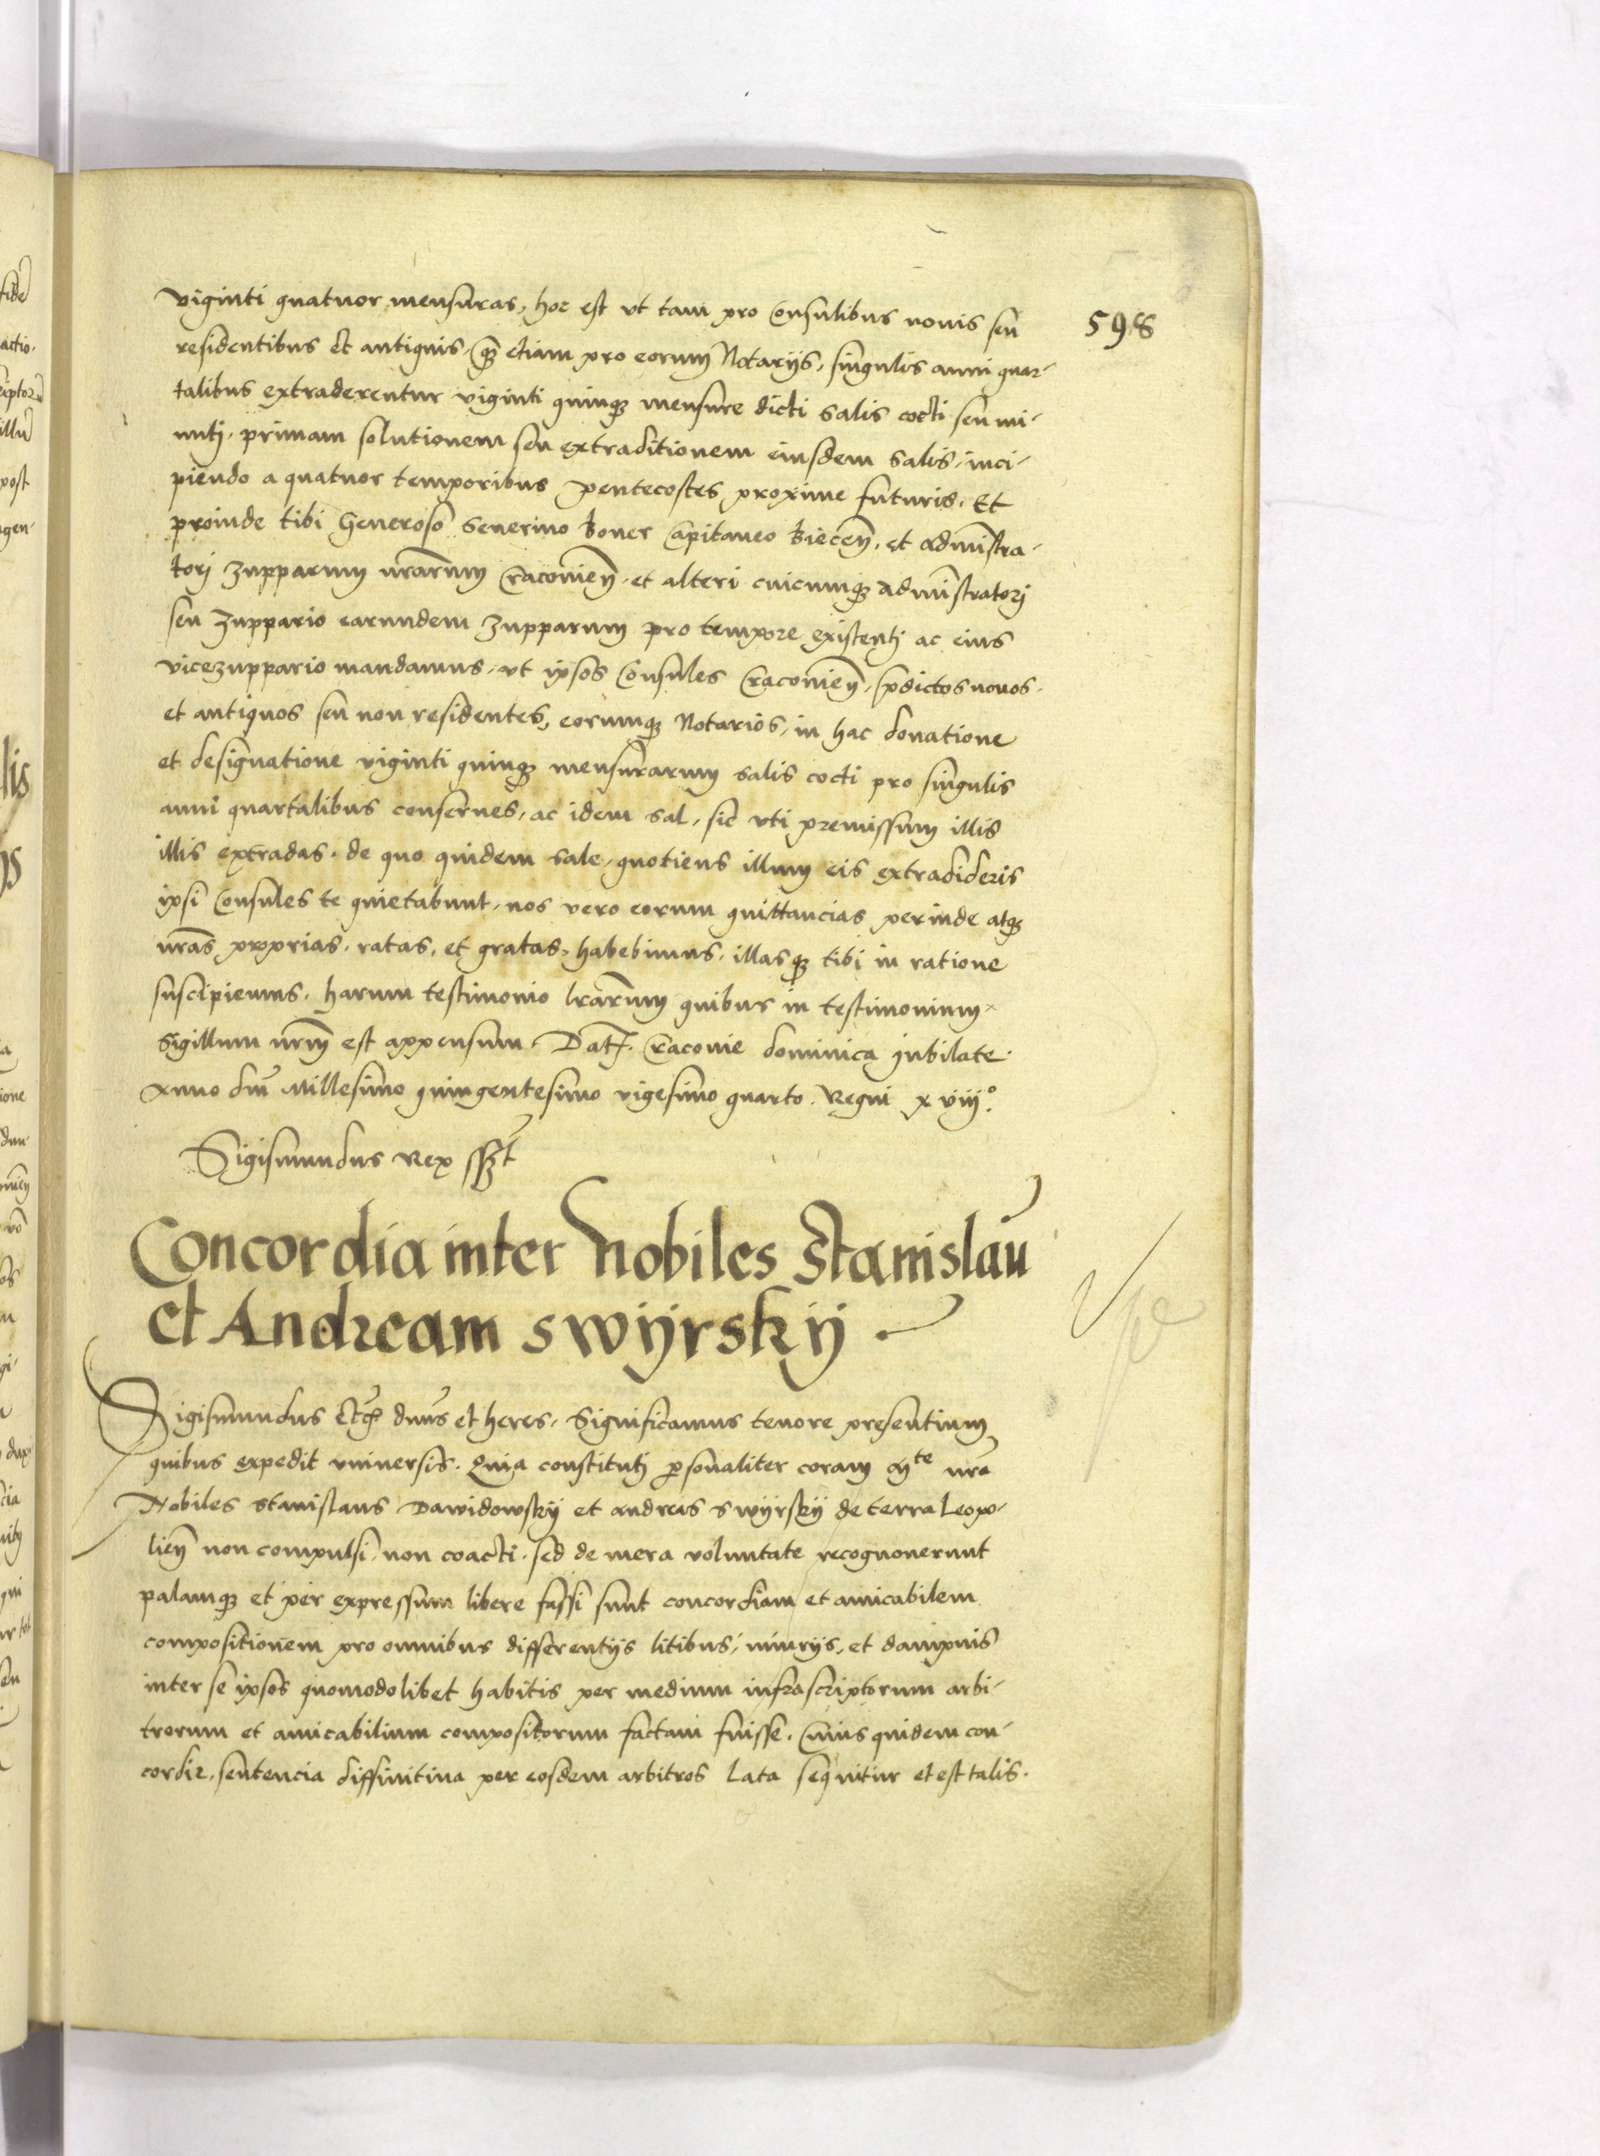 viginti quatuor mensuras, hoc est vt tam pro Consulibus nouis seu
598
residentibus Et antiquis, q̃ etiam pro eorum Notarijs, singulis anni quar-
talibus extraderentur viginti quinq3 mensure dicti salis cocti seu mi-
nuti, primam solutionem seu extraditionem eiusdem salis, inci-
piendo a quatuor temporibus pentecostes proxime futuris. Et
proinde tibi Generoso Seuerino Boner Capitaneo Biecen̄, et admīstra-
tori Zupparum nrārum Cracouien̄. et alteri cuicumq3 admīstratori
seu Zuppario earundem Zupparum pro tempore existenti ac eius
vicezuppario mandamus, vt ipsos Consules Cracouien̄, p̄dictos nouos,
et antiquos seu non residentes, eorumq3 Notarios, in hac donatione
et designatione viginti quinq3 mensurarum salis cocti pro singulis
anni quartalibus conserues, ac idem sal, sic vti premissum illis
illis extradas. de quo quidem sale, quotiens illum eis extradideris
ipsi Consules te quietabunt, nos vero eorum quittancias perinde atq3
nrās proprias, ratas, et gratas, habebimus, illasq3 tibi in ratione
suscipiemus. harum testimonio lrārum quibus in testimonium
Sigillum nrm̄ est appensum. Dat. Cracouie dominica Jubilate
Anno dnī Millesimo quingentesimo vigesimo quarto. Regni xviij°.
Sigismundus Rex sst
Concordia inter Nobiles Stanislaū
et Andream Swijrskij.
Sigismundus Etc̄ dnūs et heres. Significamus tenore presentium
quibus expedit vniuersis. Quia constituti personaliter coram M^te nrā
Nobiles Stanislaus Dawidowskij et Andreas Swijrskij de terra Leopo-
lien̄ non compulsi, non coacti, sed de mera voluntate recognouerunt
palamq3 et per expressum libere fassi sunt concordiam et amicabilem
compositionem pro omnibus differentijs litibus, iniurijs, et dampnis
inter se ipsos quomodolibet habitis per medium infrascriptorum arbi-
trorum et amicabilium compositorum factam fuisse. Cuius quidem con-
cordie, sentencia diffinitiua per eosdem arbitros lata sequitur et est talis.